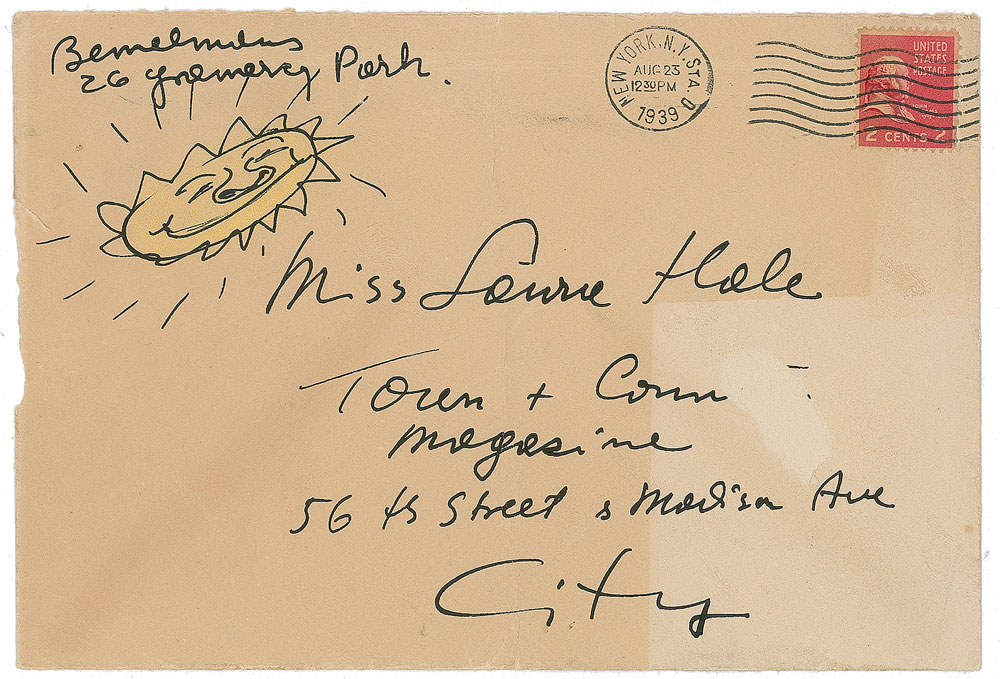 Bemelmans
26 Gramercy Park.
NEW YORK, N.Y. STA. D
AUG 23
12 30 PM
1939
UNITED
STATES
POSTAGE
JOHN
2 CENTS 2
Miss Laurie Hale
Town + Coun
Magazine
56 th Street & Madison Ave
City